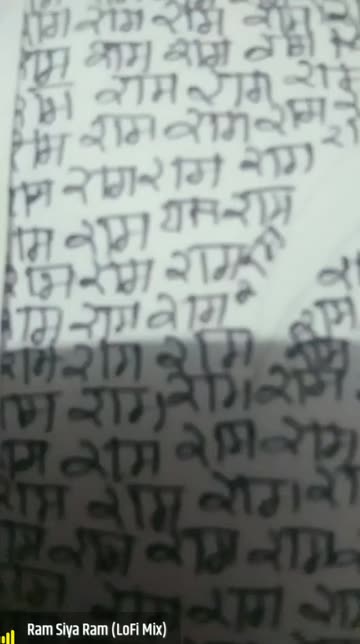 राम राम राम राम
राम राम राम राम
राम राम राम राम
राम राम राम राम
राम राम राम राम
राम राम राम राम
राम राम राम
राम राम राम
राम राम राम राम
राम राम राम राम
राम राम राम राम
राम राम राम
राम राम राम राम
राम राम राम
Ram Siya Ram (LoFi Mix)